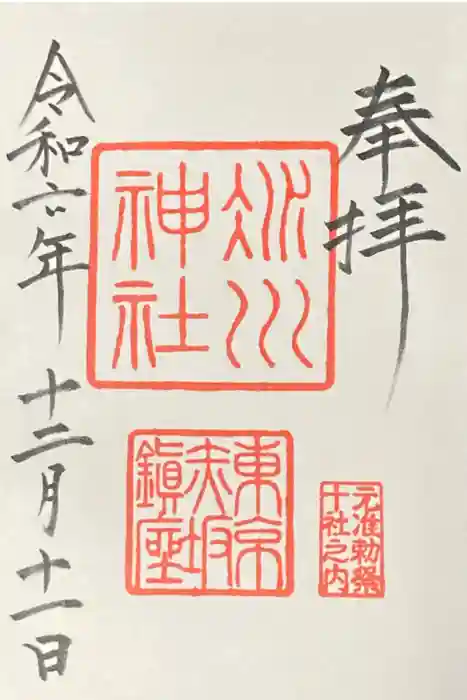 奉拝
氷川
神社
東京
赤坂
鎮座
元准勅祭
十社之内
令和六年十二月十一日